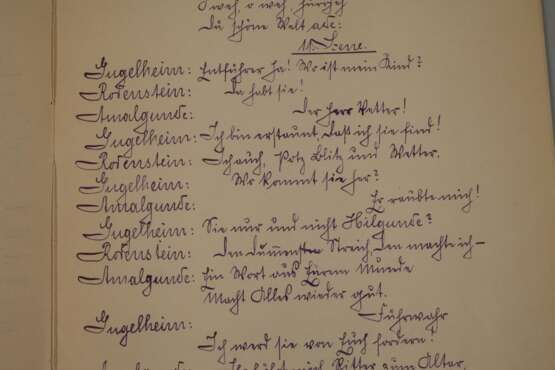 O weh, o weh,
Du schöne Welt ade:
11. Scene.
Ingelheim: Entführer ha! Wo ist mein Kind?
Rodenstein: Da habt sie!
Amalgunde: Der Herr Vetter!
Ingelheim: Ich bin erstaunt, daß ich sie find!
Rodenstein: Ich auch, Potz Blitz und Wetter.
Ingelheim: Wo kommt sie her?
Amalgunde: Er raubte mich!
Ingelheim: Sie nur und nicht Hilgunde?
Rodenstein: Den dummsten Streich, den machte ich –
Amalgunde: Ein Wort aus Eurem Munde
Macht Alles wieder gut.
Ingelheim: Fuhrwahr
Ich werd sie von Euch fordern!
mich Ritter zum Altar,